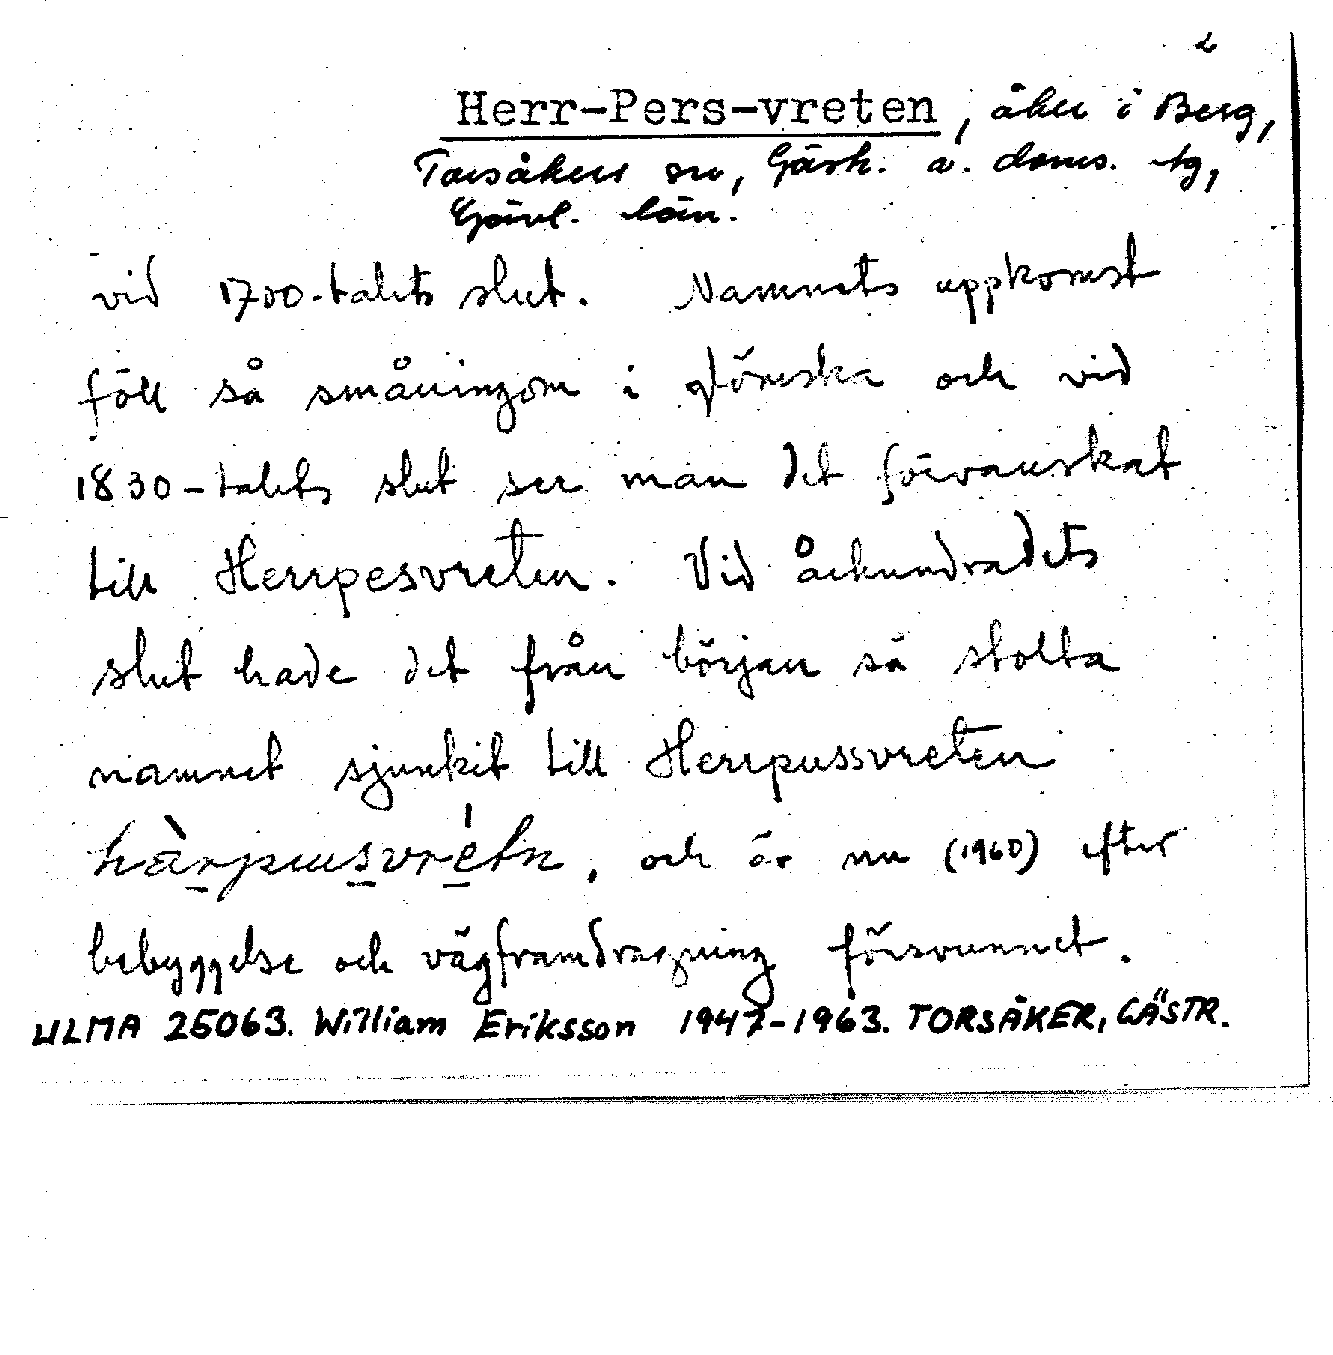 2
Herr-Pers-vreten, åker i Berg,
Torsåkers sn, Gästr. ö. doms. tg,
Gävl. län.
vid 1700-talets slut. Namnets uppkomst
föll så småningom i glömska och vid
1830-talets slut ser man det förvanskat
till Herrpesvreten. Vid århundradets
slut hade det från början så stolta
namnet sjunkit till Herrpussvreten
hàrpusvrétn, och är nu (1960) efter
bebyggelse och vägframdragning försvunnet.
ULMA 25063. William Eriksson 1947-1963. TORSÅKER, GÄSTR.